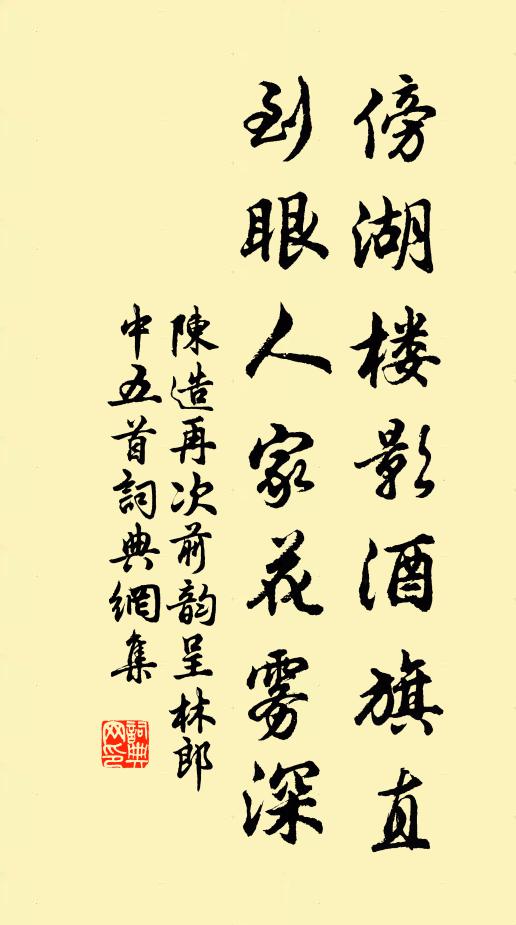 傍湖楼影酒旗直
到眼人家花雾深
陳造再次前韵呈林郎
中五首詞典網集
詞典網印